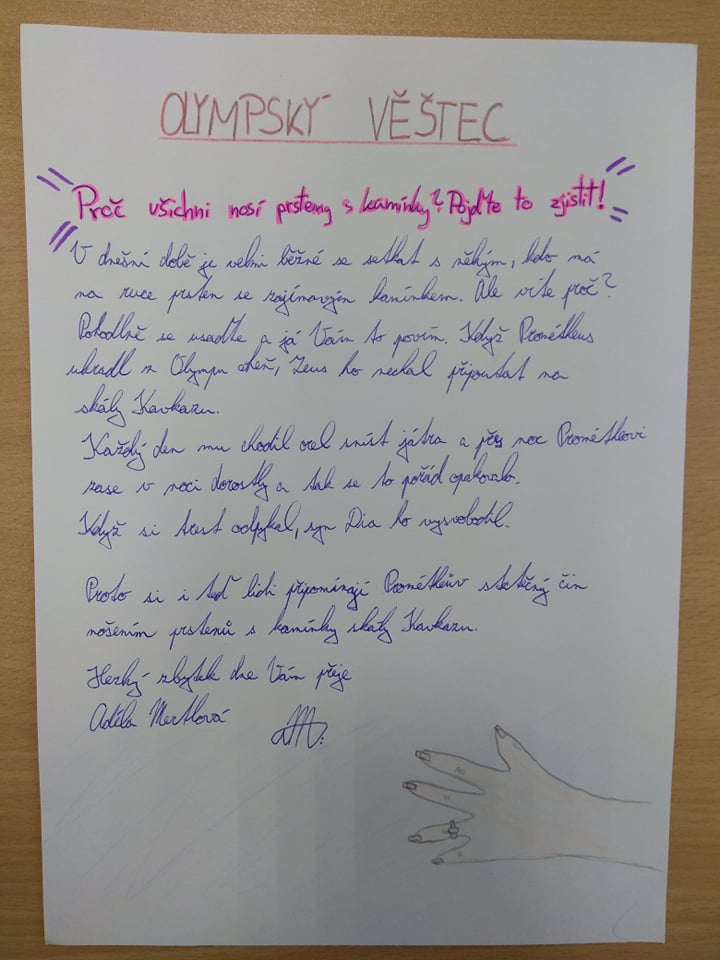 OLYMPSKÝ VĚŠTEC
Proč všichni nosí prsteny s kamínky? Pojďte to zjistit!
V dnešní době je velmi běžné se setkat s někým, kdo má
na ruce prsten se zajímavým kamínkem. Ale víte proč?
Pohodlně se usaďte a já Vám to povím. Když Prométheus
ukradl z Olympu oheň, Zeus ho nechal připoutat na
skály Kavkazu.
Každý den mu chodil orel sníst játra a přes noc Prométheovi
zase v noci dorostly a tak se to pořád opakovalo.
Když si trest odpykal, syn Dia ho vysvobodil.
Proto si i teď lidi připomínají Prométheův statečný čin
nošením prstenů s kamínky skály Kavkazu.
Hezký zbytek dne Vám přeje
Adéla Mertlová